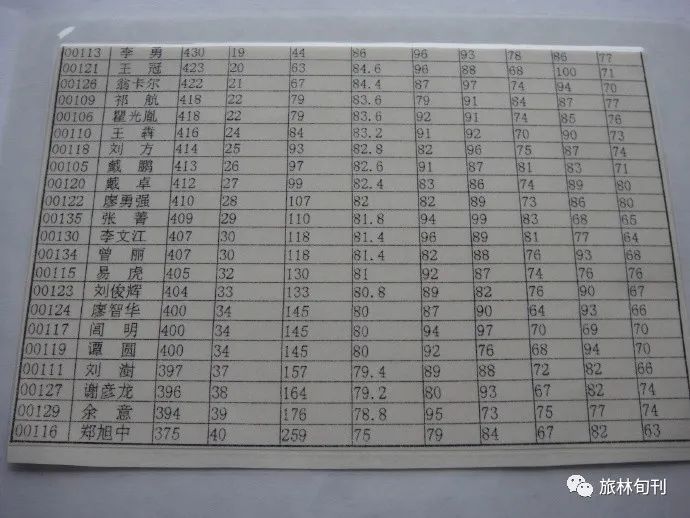 00113 李 勇 430 19 44 86 96 93 78 86 77
00121 王 冠 423 20 63 84.6 96 88 68 100 71
00126 翁卡尔 422 21 67 84.4 87 97 74 94 70
00109 祁 航 418 22 79 83.6 79 91 84 87 77
00106 瞿光胤 418 22 79 83.6 92 91 74 85 76
00110 王 犇 416 24 84 83.2 91 92 70 90 73
00118 刘 方 414 25 93 82.8 82 96 75 87 74
00105 戴 鹏 413 26 97 82.6 91 87 81 83 71
00120 戴 卓 412 27 99 82.4 83 86 74 89 80
00122 廖勇强 410 28 107 82 82 89 73 86 80
00135 张 菁 409 29 110 81.8 94 99 83 68 65
00130 李文江 407 30 118 81.4 96 89 81 77 64
00134 曾 丽 407 30 118 81.4 82 88 76 93 68
00115 易 虎 405 32 130 81 92 87 74 76 76
00123 刘俊辉 404 33 133 80.8 89 82 76 90 67
00124 廖智华 400 34 145 80 87 90 64 93 66
00117 闾 明 400 34 145 80 94 97 70 69 70
00119 谭 圆 400 34 145 80 92 76 68 94 70
00111 刘 澍 397 37 157 79.4 89 88 72 82 66
00127 谢彦龙 396 38 164 79.2 80 93 67 82 74
00129 余 意 394 39 176 78.8 95 73 75 77 74
00116 郑旭中 375 40 259 75 79 84 67 82 63
旅林旬刊